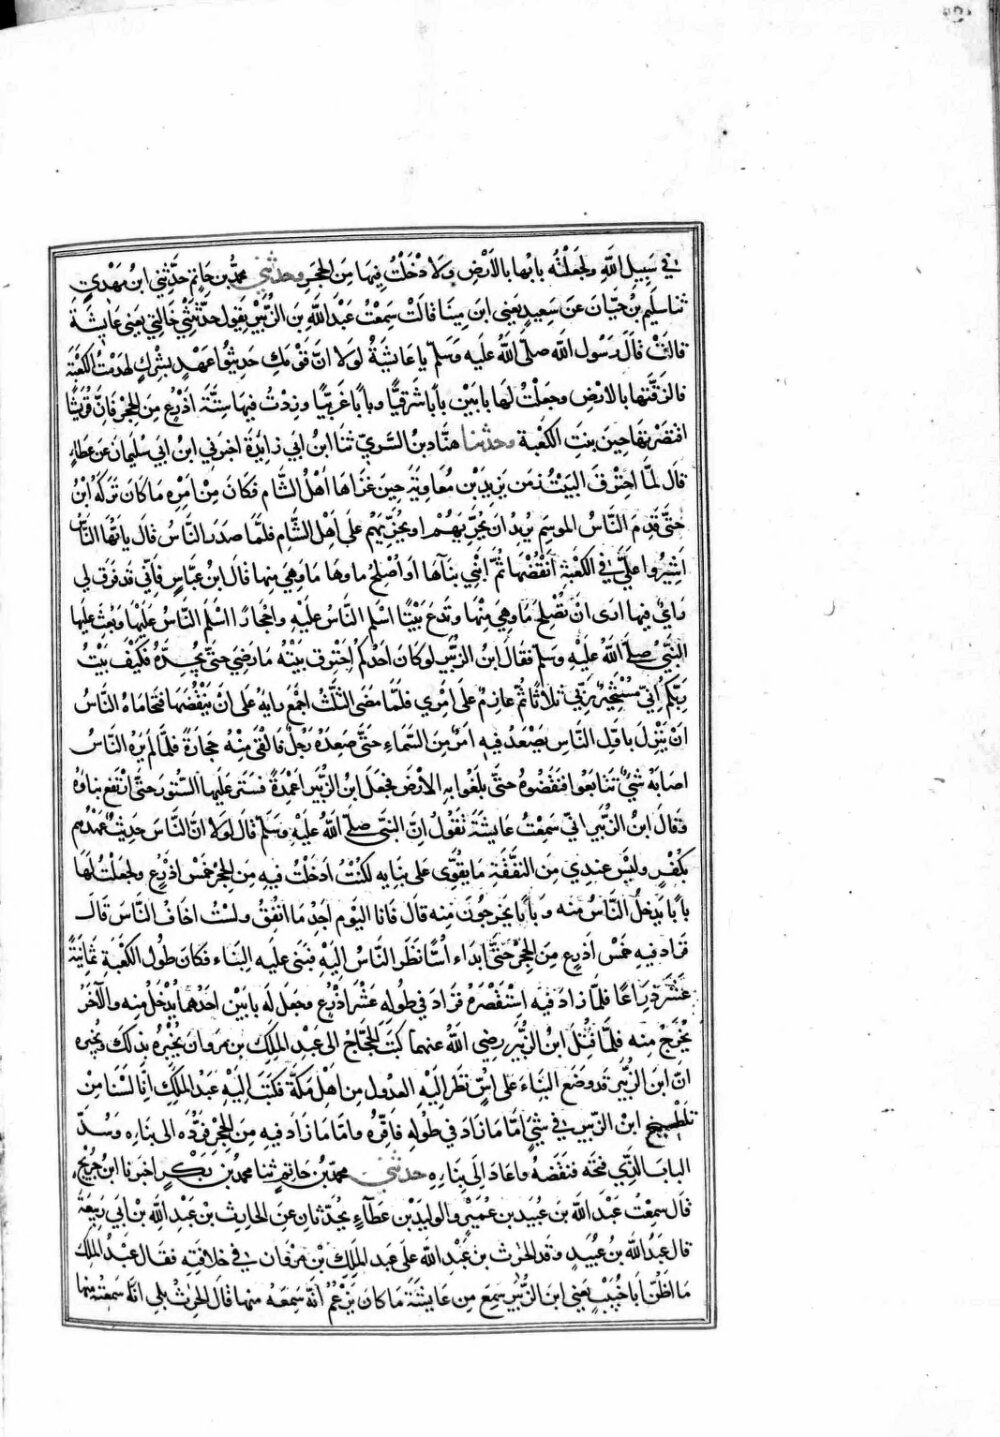 في سبيل الله ولجعلته بابها بالارض ولادخلت فيها من الحجر وحدثني محمد بن حاتم حدثني ابن مهدي
ثنا سليم بن حيان عن سعيد يعني ابن مينا قالت سمعت عبد الله بن الزبير يقول حدثتني خالتي يعني عايشة
قالت قال رسول الله صلى الله عليه وسلم يا عايشة لولا ان قومك حديثوا عهد بشرك لهدمت الكعبة
فالزقتها بالارض وجعلت لها بابين بابا شرقيا وبابا غربيا وزدت فيها ستة اذرع من الحجر فان قريشا
اقتصرتها حين بنت الكعبة وحدثنا هناد بن السري ثنا ابن ابي زايدة اخبرني ابن ابي سليمان عن عطاء
قال لما احترق البيت زمن يزيد بن معاوية حين غزاها اهل الشام فكان من امره ما كان تركه ابن
حتى قدم الناس الموسم يريد ان يجريهم او يحزبهم على اهل الشام فلما صدر الناس قال يايها الناس
اشيروا علي في الكعبة انقضها ثم ابني بناآها او اصلح ما وها ما وهي منها قال ابن عباس فاني قد فرق لي
راي فيها ارى ان تصلح ما وهي منها وتدع بيتا اسلم الناس عليه واحجارا اسلم الناس عليها وبعث عليها
النبي صلى الله عليه وسلم فقال ابن الزبير لو كان احدكم احترق بيته ما رضي حتى يجده فكيف بيت
ربكم اني مستخير ربي ثلاثا ثم عازم على امري فلما مضى الثلث اجمع رايه على ان ينقضها فتحاماه الناس
ان ينزل باول الناس يصعد فيه امر من السماء حتى صعده رجل فالقى منه حجارة فلما لم يره الناس
اصابه شي تتابعوا فنقضوه حتى بلغوا به الارض فجعل ابن الزبير اعمدة فستر عليها الستور حتى ارتفع بناوه
وقال ابن الزبير اني سمعت عايشة تقول ان النبي صلى الله عليه وسلم قال لولا ان الناس حديث عهدهم
بكفر وليس عندي من النفقة ما يقوى على بنايه لكنت ادخلت فيه من الحجر خمس اذرع ولجعلت لها
بابا يدخل الناس منه وبابا يخرجون منه قال فانا اليوم اجد ما انفق ولست اخاف الناس قال
فزاد فيه خمس اذرع من الحجر حتى ابداء اسا نظر الناس اليه فبنى عليه البناء فكان طول الكعبة ثمانية
عشرة ذراعا فلما زاد فيه استقصره فزاد في طوله عشر اذرع وجعل له بابين احدهما يدخل منه والآخر
يخرج منه فلما قتل ابن الزبير رضي الله عنهما كتب الحجاج الى عبد الملك بن مروان يخبره بذلك ويخبره
ان ابن الزبير قد وضع البناء على اس نظر اليه العدول من اهل مكة فكتب اليه عبد الملك انا لسنا من
تلطيخ ابن الزبير في شي اما ما زاد في طوله فاقره واما ما زاد فيه من الحجر فرده الى بنايه وسد
الباب الذي فتحه فنقضه واعاد الى بنايه حدثني محمد بن حاتم ثنا محمد بن بكر اخبرنا ابن جريج
قال سمعت عبد الله بن عبيد بن عمير والوليد بن عطآء يحدثان عن الحارث بن عبد الله بن ابي ربيعة
قال عبد الله بن عبيد وفد الحرث بن عبد الله على عبد الملك بن مروان في خلافته فقال عبد الملك
ما اظن ابا خبيب يعني ابن الزبير سمع من عايشة ما كان يزعم انه سمعه منها قال الحرث بلى انا سمعته منها